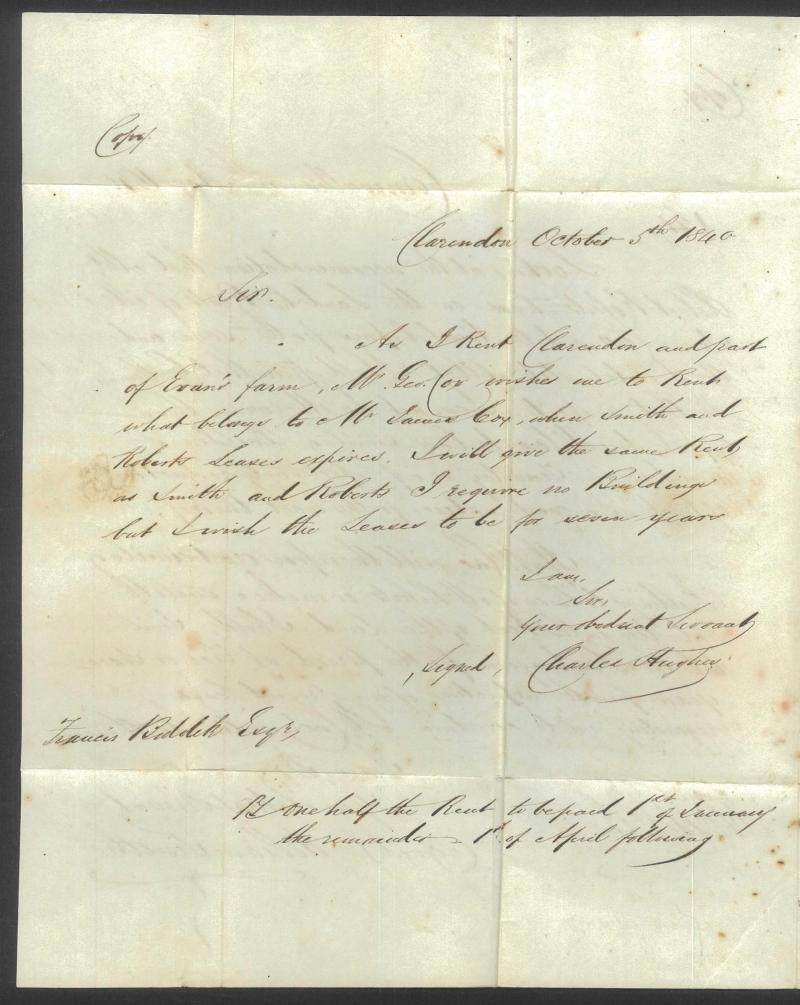 Copy.
Clarendon October 5th 1840
Sir.
As I Rent Clarendon and part
of Evan's farm, Mr. Geo. Cox wishes me to Rent
what belongs to Mr James Cox, when Smith and
Roberts Leases expires. I will give the same Rent
as Smith and Roberts I require no Buildings
but I wish the Leases to be for seven years
I am,
Sir,
your obedient Servant
Signed, Charles Hughes
Francis Esqr,
one half the Rent to be paid 1st of January
the remainder 1st of April following